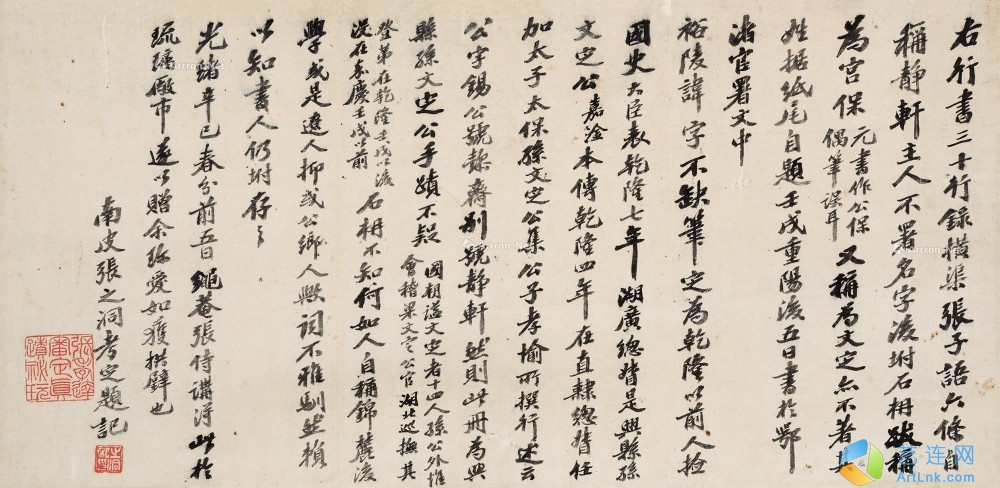 右行书三十行錄橫渠張子語六條自
稱靜軒主人不署名字後坿石枏跋稱
為宮保 元書作公保偶筆誤耳 又稱為文定亦不著其
姓据紙尾自題壬戌重陽後五日書於鄂
渚官署文中
裕陵諱字不缺筆定為乾隆以前人撿
國史大臣表乾隆七年湖廣總督是興縣孫
文定公嘉淦本傳乾隆四年在直隸總督任
加太子太保孫文定公集公子孝愉所撰行述云
公字錫公號懿齋別號靜軒然則此冊為興
縣孫文定公手蹟不疑 國朝諡文定者十四人孫公外惟會稽梁文定公官湖北巡撫其
登第在乾隆壬戌以後沒在嘉慶壬戌以前 石枏不知何如人自稱錦麓後
學或是遼人抑或公鄉人歟詞不雅馴然楨
以知書人仍坿存之
光緒辛巳春分前五日繩菴張侍講得此於
琉璃廠市遂以贈余珍愛如獲拱璧也
南皮張之洞考定題記